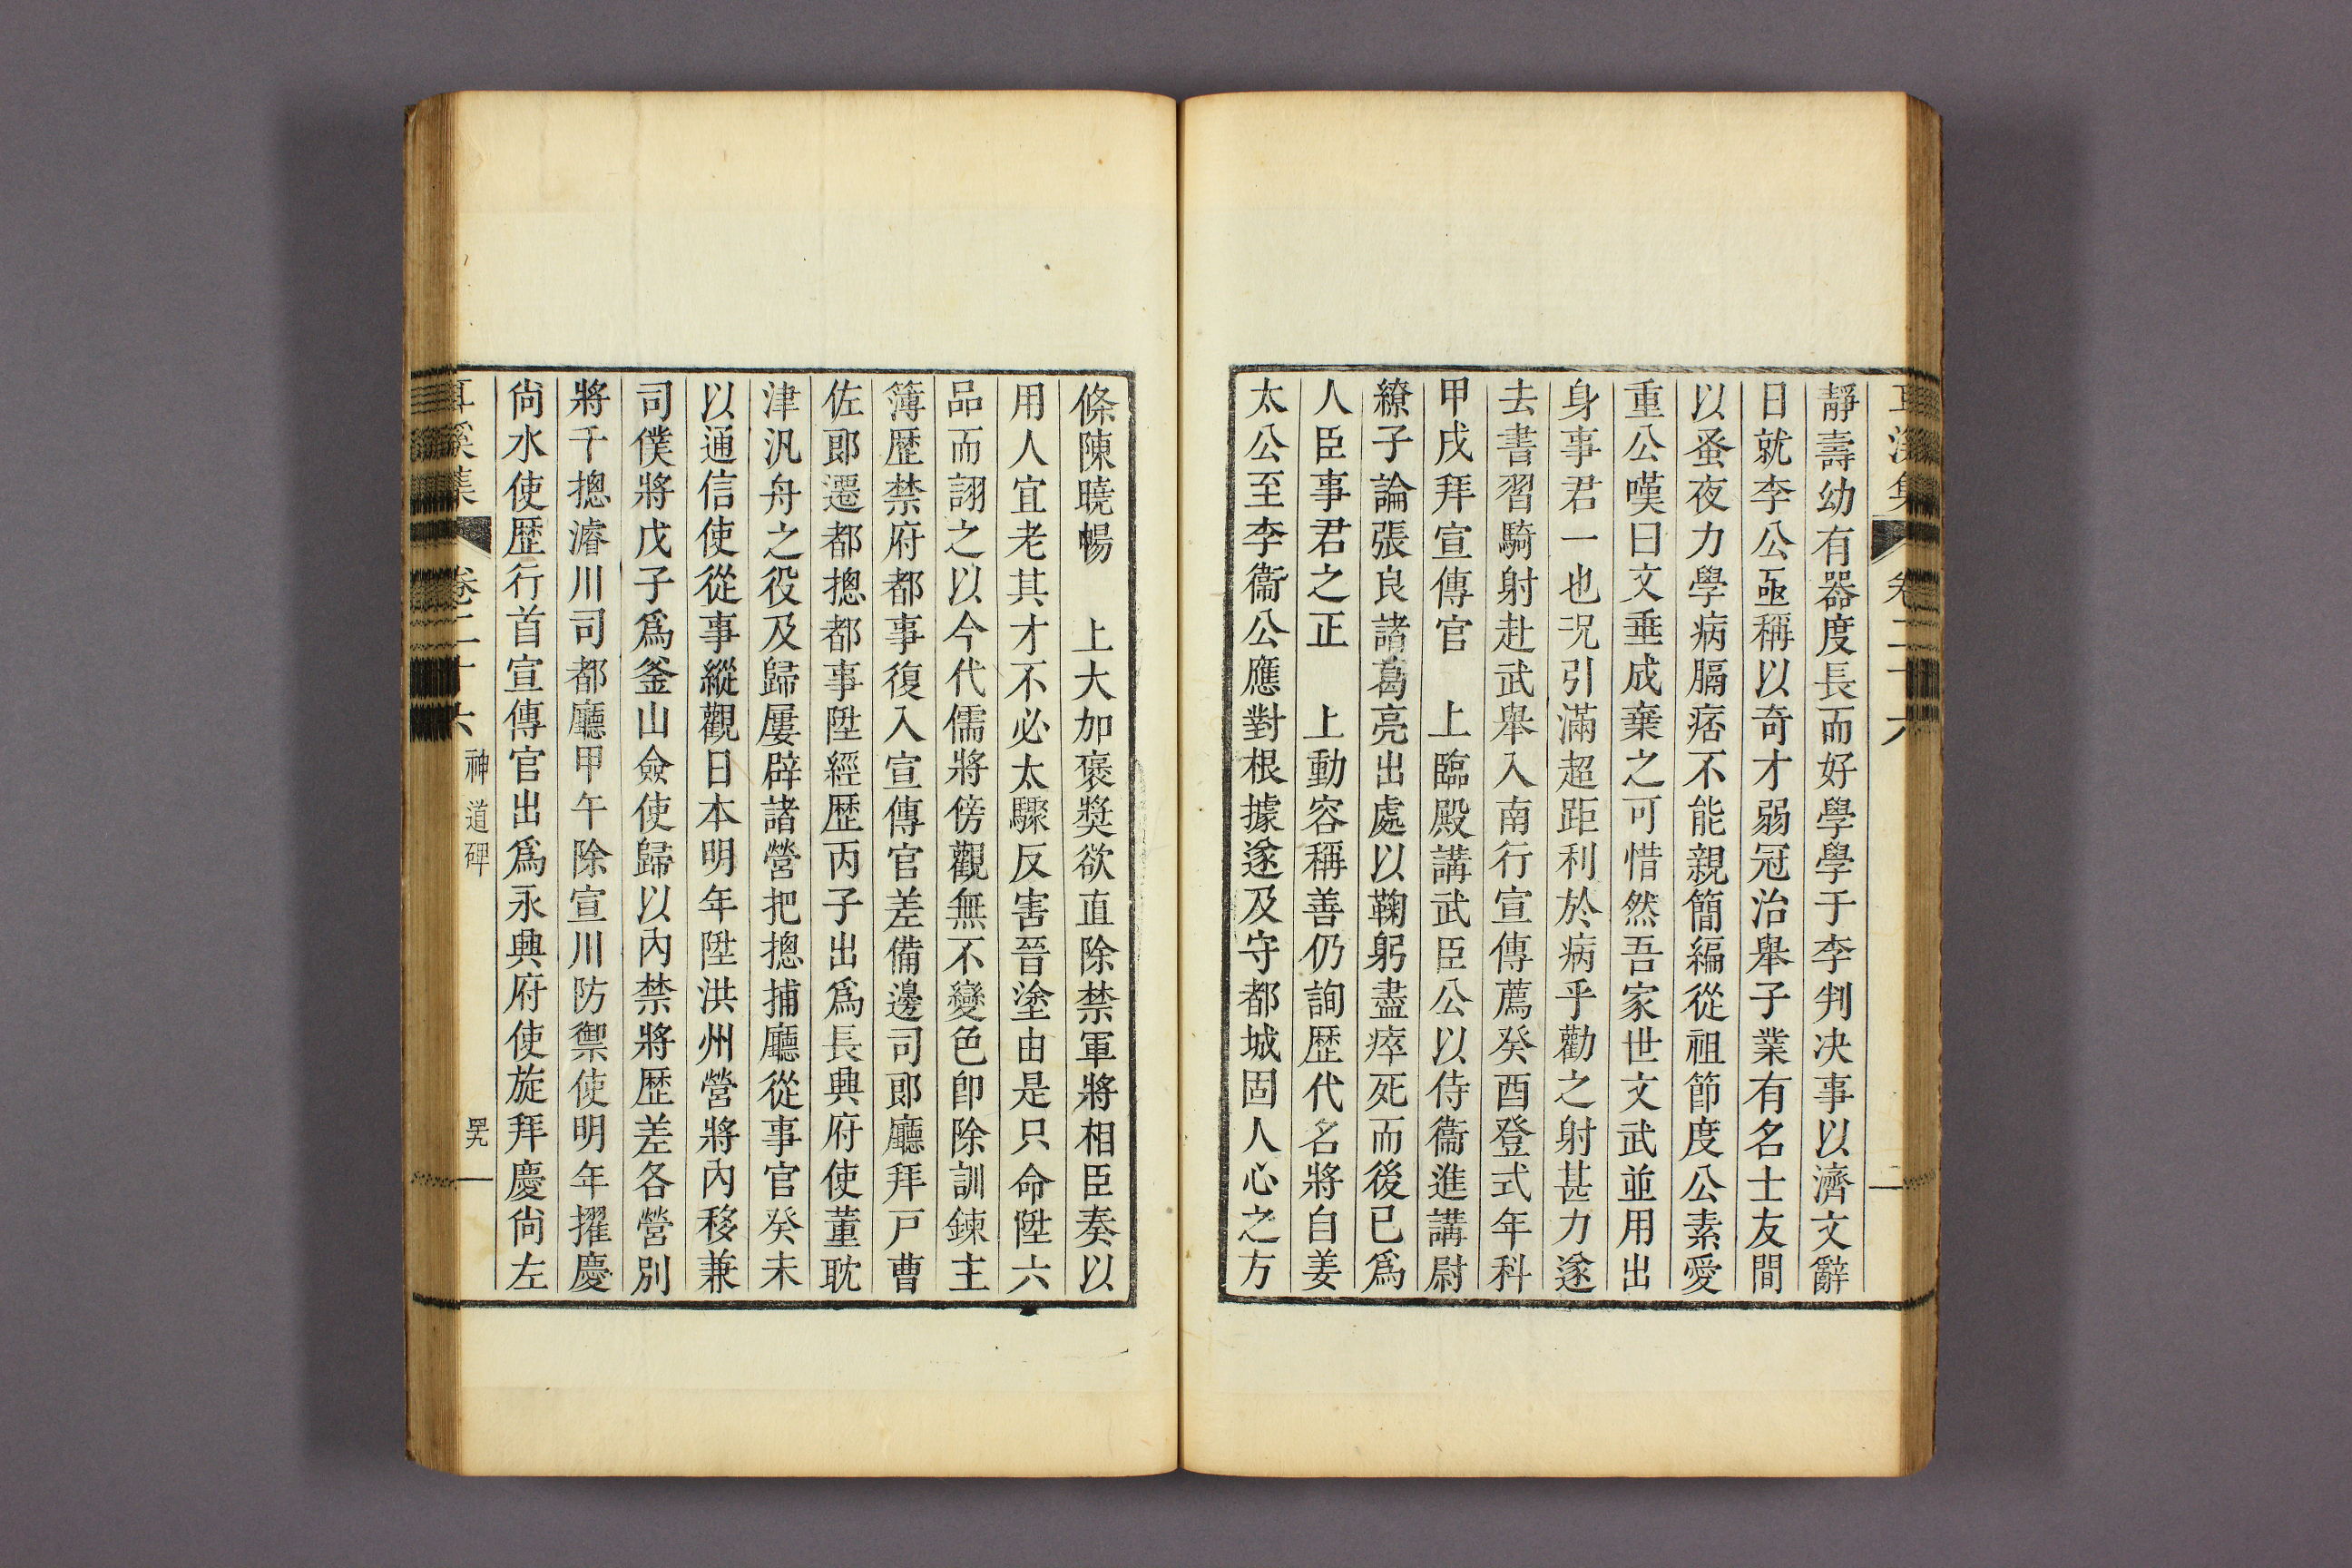 耳溪集 卷二十六
靜壽幼有器度長而好學學于李判决事以濟文辭
日就李公亟稱以奇才弱冠治舉子業有名士友間
以蚤夜力學病膈痞不能親簡編從祖節度公素愛
重公嘆曰文垂成棄之可惜然吾家世文武並用出
身事君一也况引滿超距利於病乎勸之射甚力遂
去書習騎射赴武舉入南行宣傳薦癸酉登式年科
甲戌拜宣傳官 上臨殿講武臣公以侍衞進講尉
繚子論張良諸葛亮出處以鞠躬盡瘁死而後已爲
人臣事君之正 上動容稱善仍詢歷代名將自姜
太公至李衞公應對根據遂及守都城固人心之方
條陳曉暢 上大加褒奬欲直除禁軍將相臣奏以
用人宜老其才不必太驟反害晉塗由是只命陞六
品而詡之以今代儒將傍觀無不變色卽除訓鍊主
簿歷禁府都事復入宣傳官差備邊司郎廳拜戶曹
佐郎遷都摠都事陞經歷丙子出爲長興府使董眈
津汎舟之役及歸屢辟諸營把摠捕廳從事官癸未
以通信使從事縱觀日本明年陞洪州營將內移兼
司僕將戊子爲釜山僉使歸以內禁將歷差各營別
將千摠濬川司都廳甲午除宣川防禦使明年擢慶
尙水使歷行首宣傳官出爲永興府使旋拜慶尙左
耳溪集 卷二十六 神道碑 四九